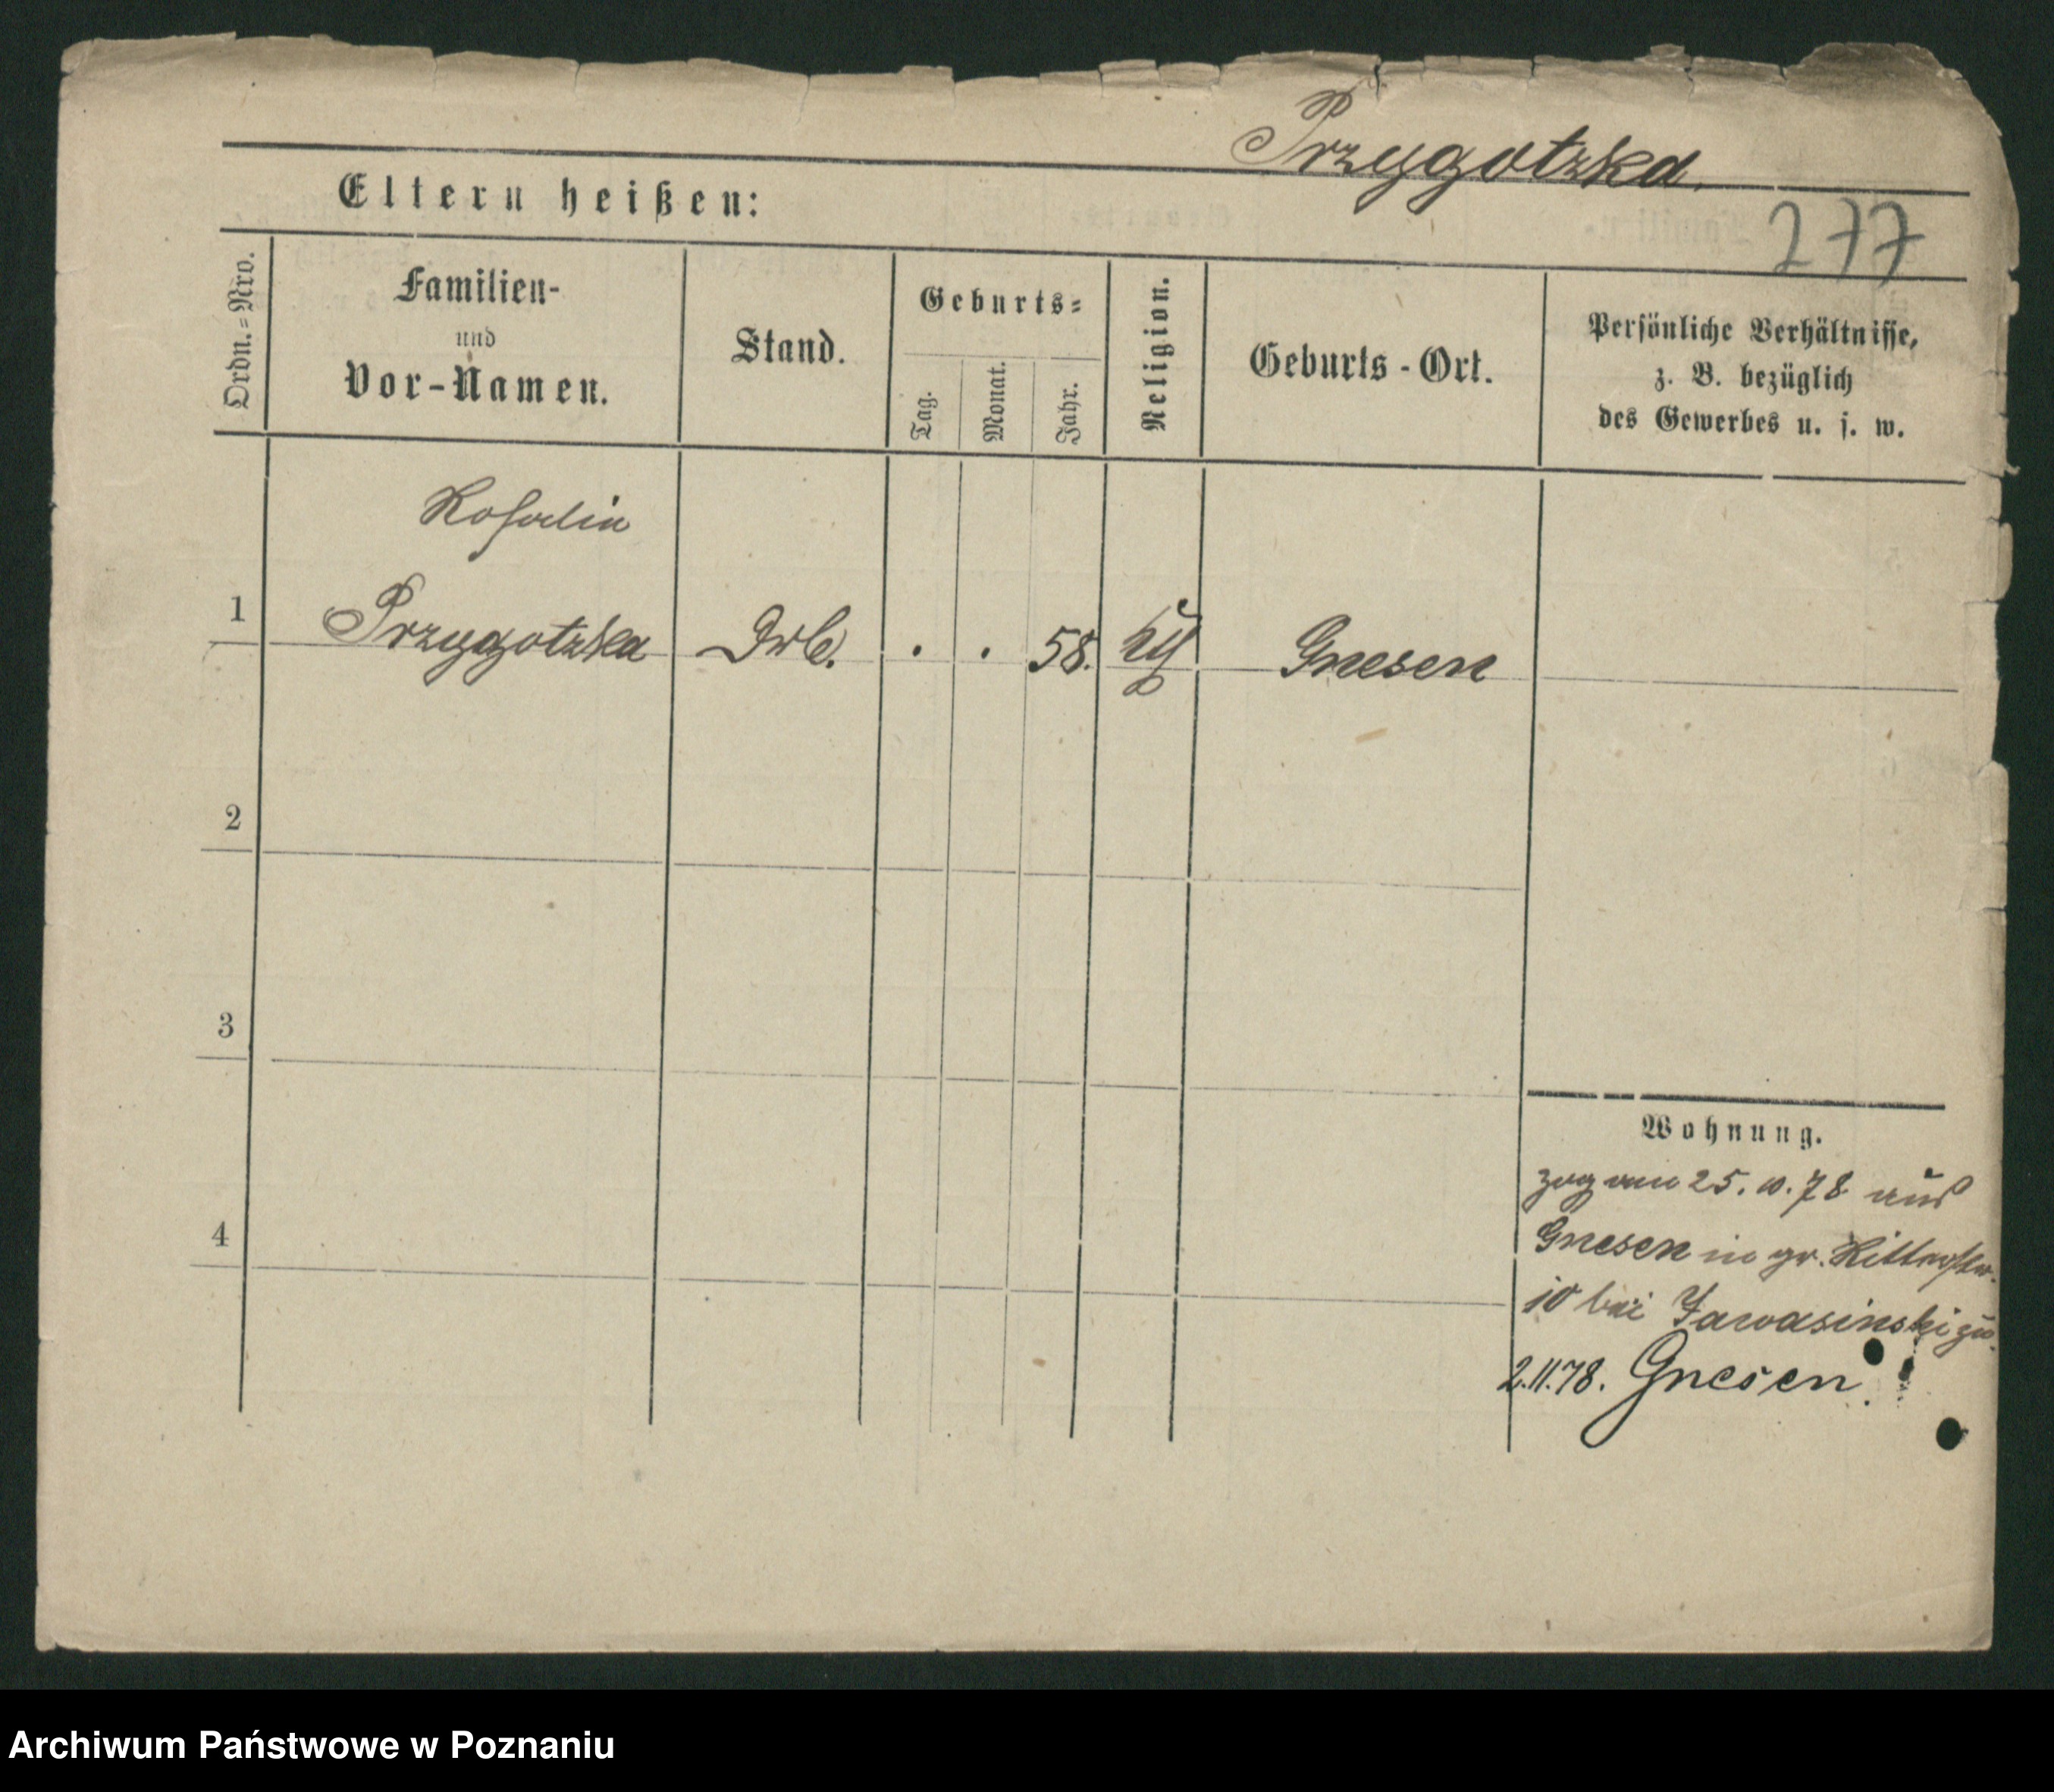 Przygotzka.
Eltern heißen:
277
Ordn.=Nro.
Familien-
und
Vor-Namen.
Stand.
Geburts=
Tag.
Monat.
Jahr.
Religion.
Geburts-Ort.
Persönliche Verhältnisse,
z. B. bezüglich
des Gewerbes u. s. w.
Rosalia
1 Przygotzka . . 58. Gnesen
2
3
4
Wohnung.
zog am 25. 10. 78 aus
Gnesen in gr. Ritterstr.
10 bei zu.
2.11.78. Gnesen
Archiwum Państwowe w Poznaniu